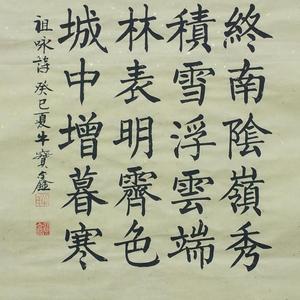 終南陰嶺秀
積雪浮雲端
林表明霽色
城中增暮寒
祖咏詩 癸巳夏牛寶